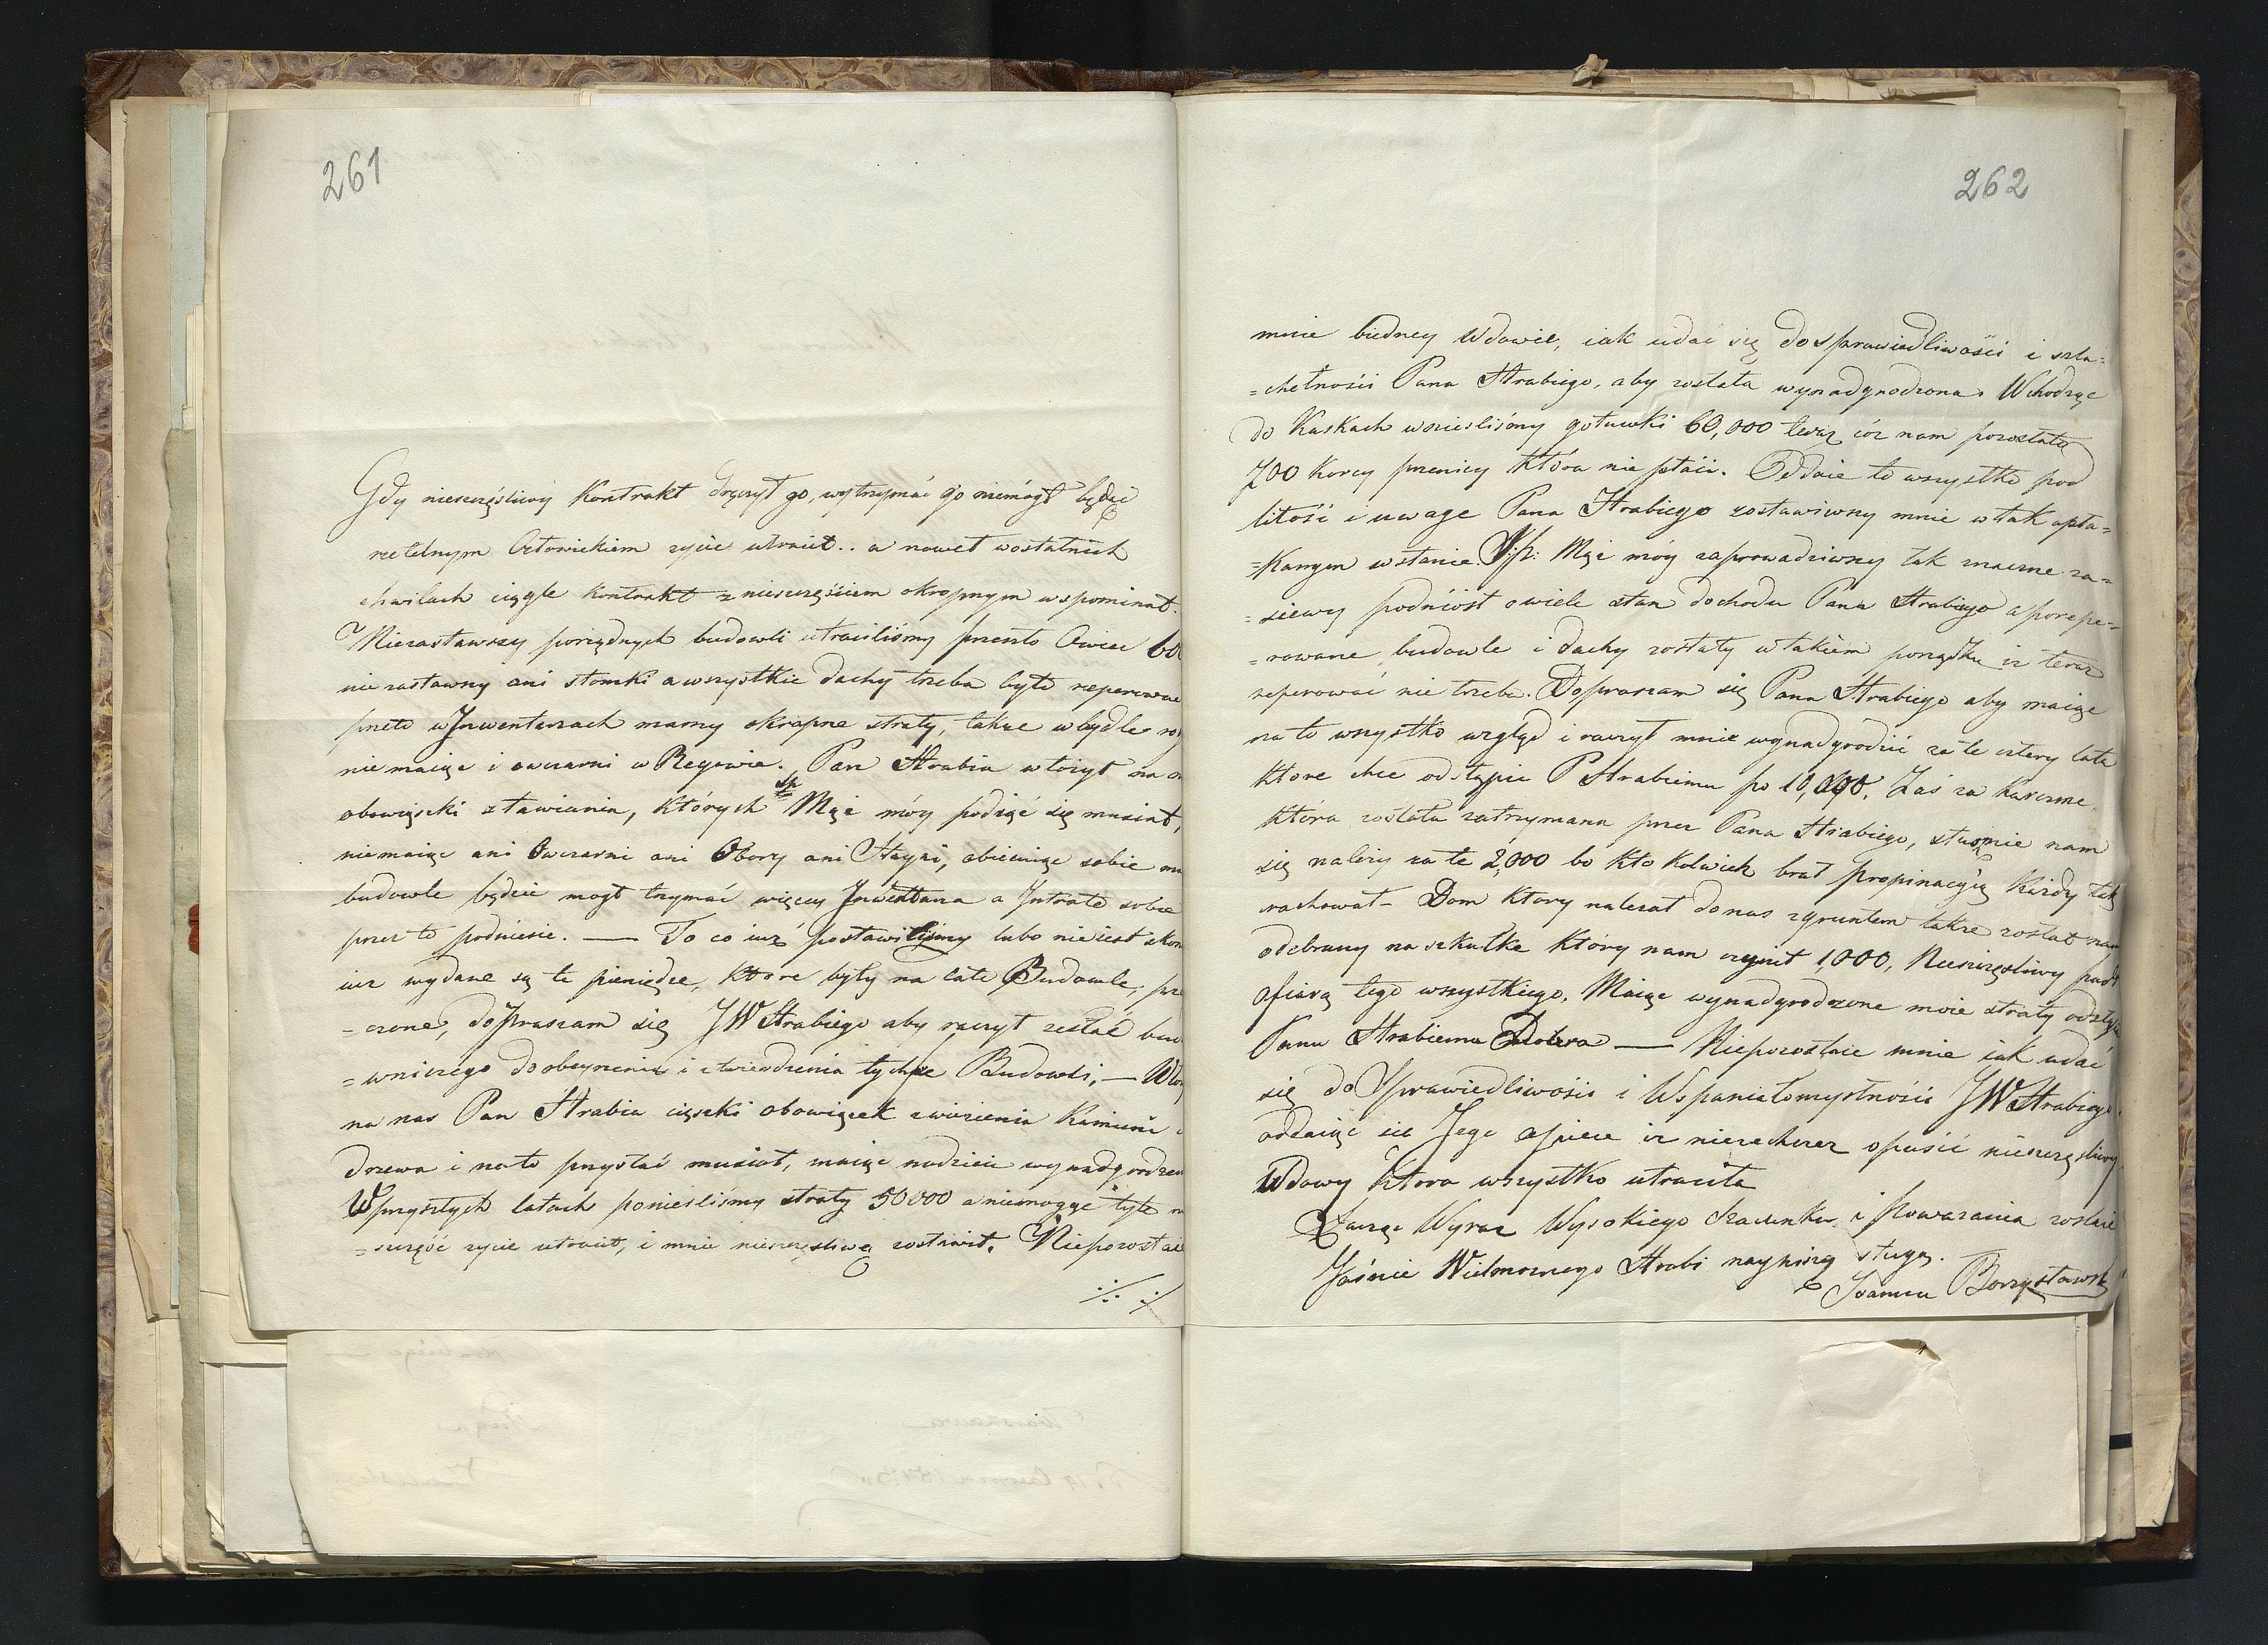 261
Gdy nieszczęśliwy Kontrakt dręczył go, wytrzymać go niemógł będąc
rzetelnym Człowiekiem życie utracił.. a nawet wostatnich
chwilach ciągle Kontrakt z nieszczęściem okropnym wspominał.
Niezastawszy porządnych budowli utraciliśmy przesto Owiec 60
nie zastawszy ani słomki a wszystkie dachy trzeba było reperować
przeto w Inwentarzach mamy okropne straty, także w bydle
nie maiąc i owczarni w Regowie. Pan Hrabia włożył na
obowiązki stawiania, których śp Mąż móy podiąć się musiał,
niemaiąc ani Owczarni ani Obory ani Stayni, obiecuiąc sobie
budowle będzie mogł trzymać więcey Inwentarza a Intratę sobie
przez to podniesie. — To co iuż postawiliśmy lubo nieiest
iuż wydane są te pieniądze, które były na całe Budowle,
=czone, dopraszam się JWHrabiego aby raczył zesłać bud
=wniczego do obeyrzenia i stwierdzenia tychże Budowli, —
na nas Pan Hrabia ciężki obowiązek zwiezienia Kamieni
drzewa i na to przystać musiał, maiąc nadzieie wynadgrodzen
W przyszłych latach ponieśliśmy straty 50000 a niemogąc tyle
=szczęść życie utracił, i mnie nieszczęśliwą zostawił. Niepozostaie
262
mnie biedney Wdowie, iak udać się do sprawiedliwości i szla=
=chetności Pana Hrabiego, aby została wynadgrodzona. Wchodząc
do Kaskach wnieśliśmy gotuwki 60,000 teraz cóz nam pozostało
700 korcy pszenicy która nie płaci. Oddaie to wszystko pod
litość i uwage Pana Hrabiego zostawiwszy mnie w tak opła=
=kanym wstanie. Śp: Mąż móy zaprowadziwszy tak znaczne za=
=siewy podniósł owiele stan dochodu Pana Hrabiego a porepe=
=rowane budowle i dachy zostały w takiém porządku iz teraz
reperować nie trzeba. Dopraszam się Pana Hrabiego aby maiąc
na to wszystko wzgląd i raczył mnie wynadgrodzić za te cztery lata
ktore chce odstąpić P Hrabiemu po 10,000. Zaś za karczme
która została zatrzymana przez Pana Hrabiego, słusznie nam
się należy za te 2,000 bo kto kolwiek brał propinacyią każdy tak
rachował — Dom ktory należał do nas z gruntem także został nam
odebrany na szkułke który nam czynił 1,000, Nieszczęśliwy padł
ofiarą tego wszystkiego. Maiąc wynadgrodzone moie straty odstąpię
Panu Hrabiemu Dobra — Niepozostaie mnie iak udać
się do Sprawiedliwości i Wspaniałomyślności JWHrabiego
oddaiąc się Jego opiece iz niezechcesz opuścić nieszczęśliwy
Wdowy która wszystko utraciła
Łącząc Wyraz Wysokiego Szacunku i Poważania zostaie
Jaśnie Wielmożnego Hrabi nayniższą sługą.
Joanna Borzysławsk